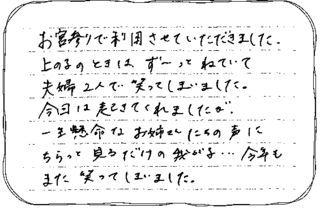 お宮参りで利用させていただきました。
上の子のときは ずーっと ねていて
夫婦2人で笑ってしまいました。
今回は起きてくれましたが、
一生懸命な お姉さんたちの声に
ちらっと 見るだけの 我が子… 今年も
また 笑ってしまいました。